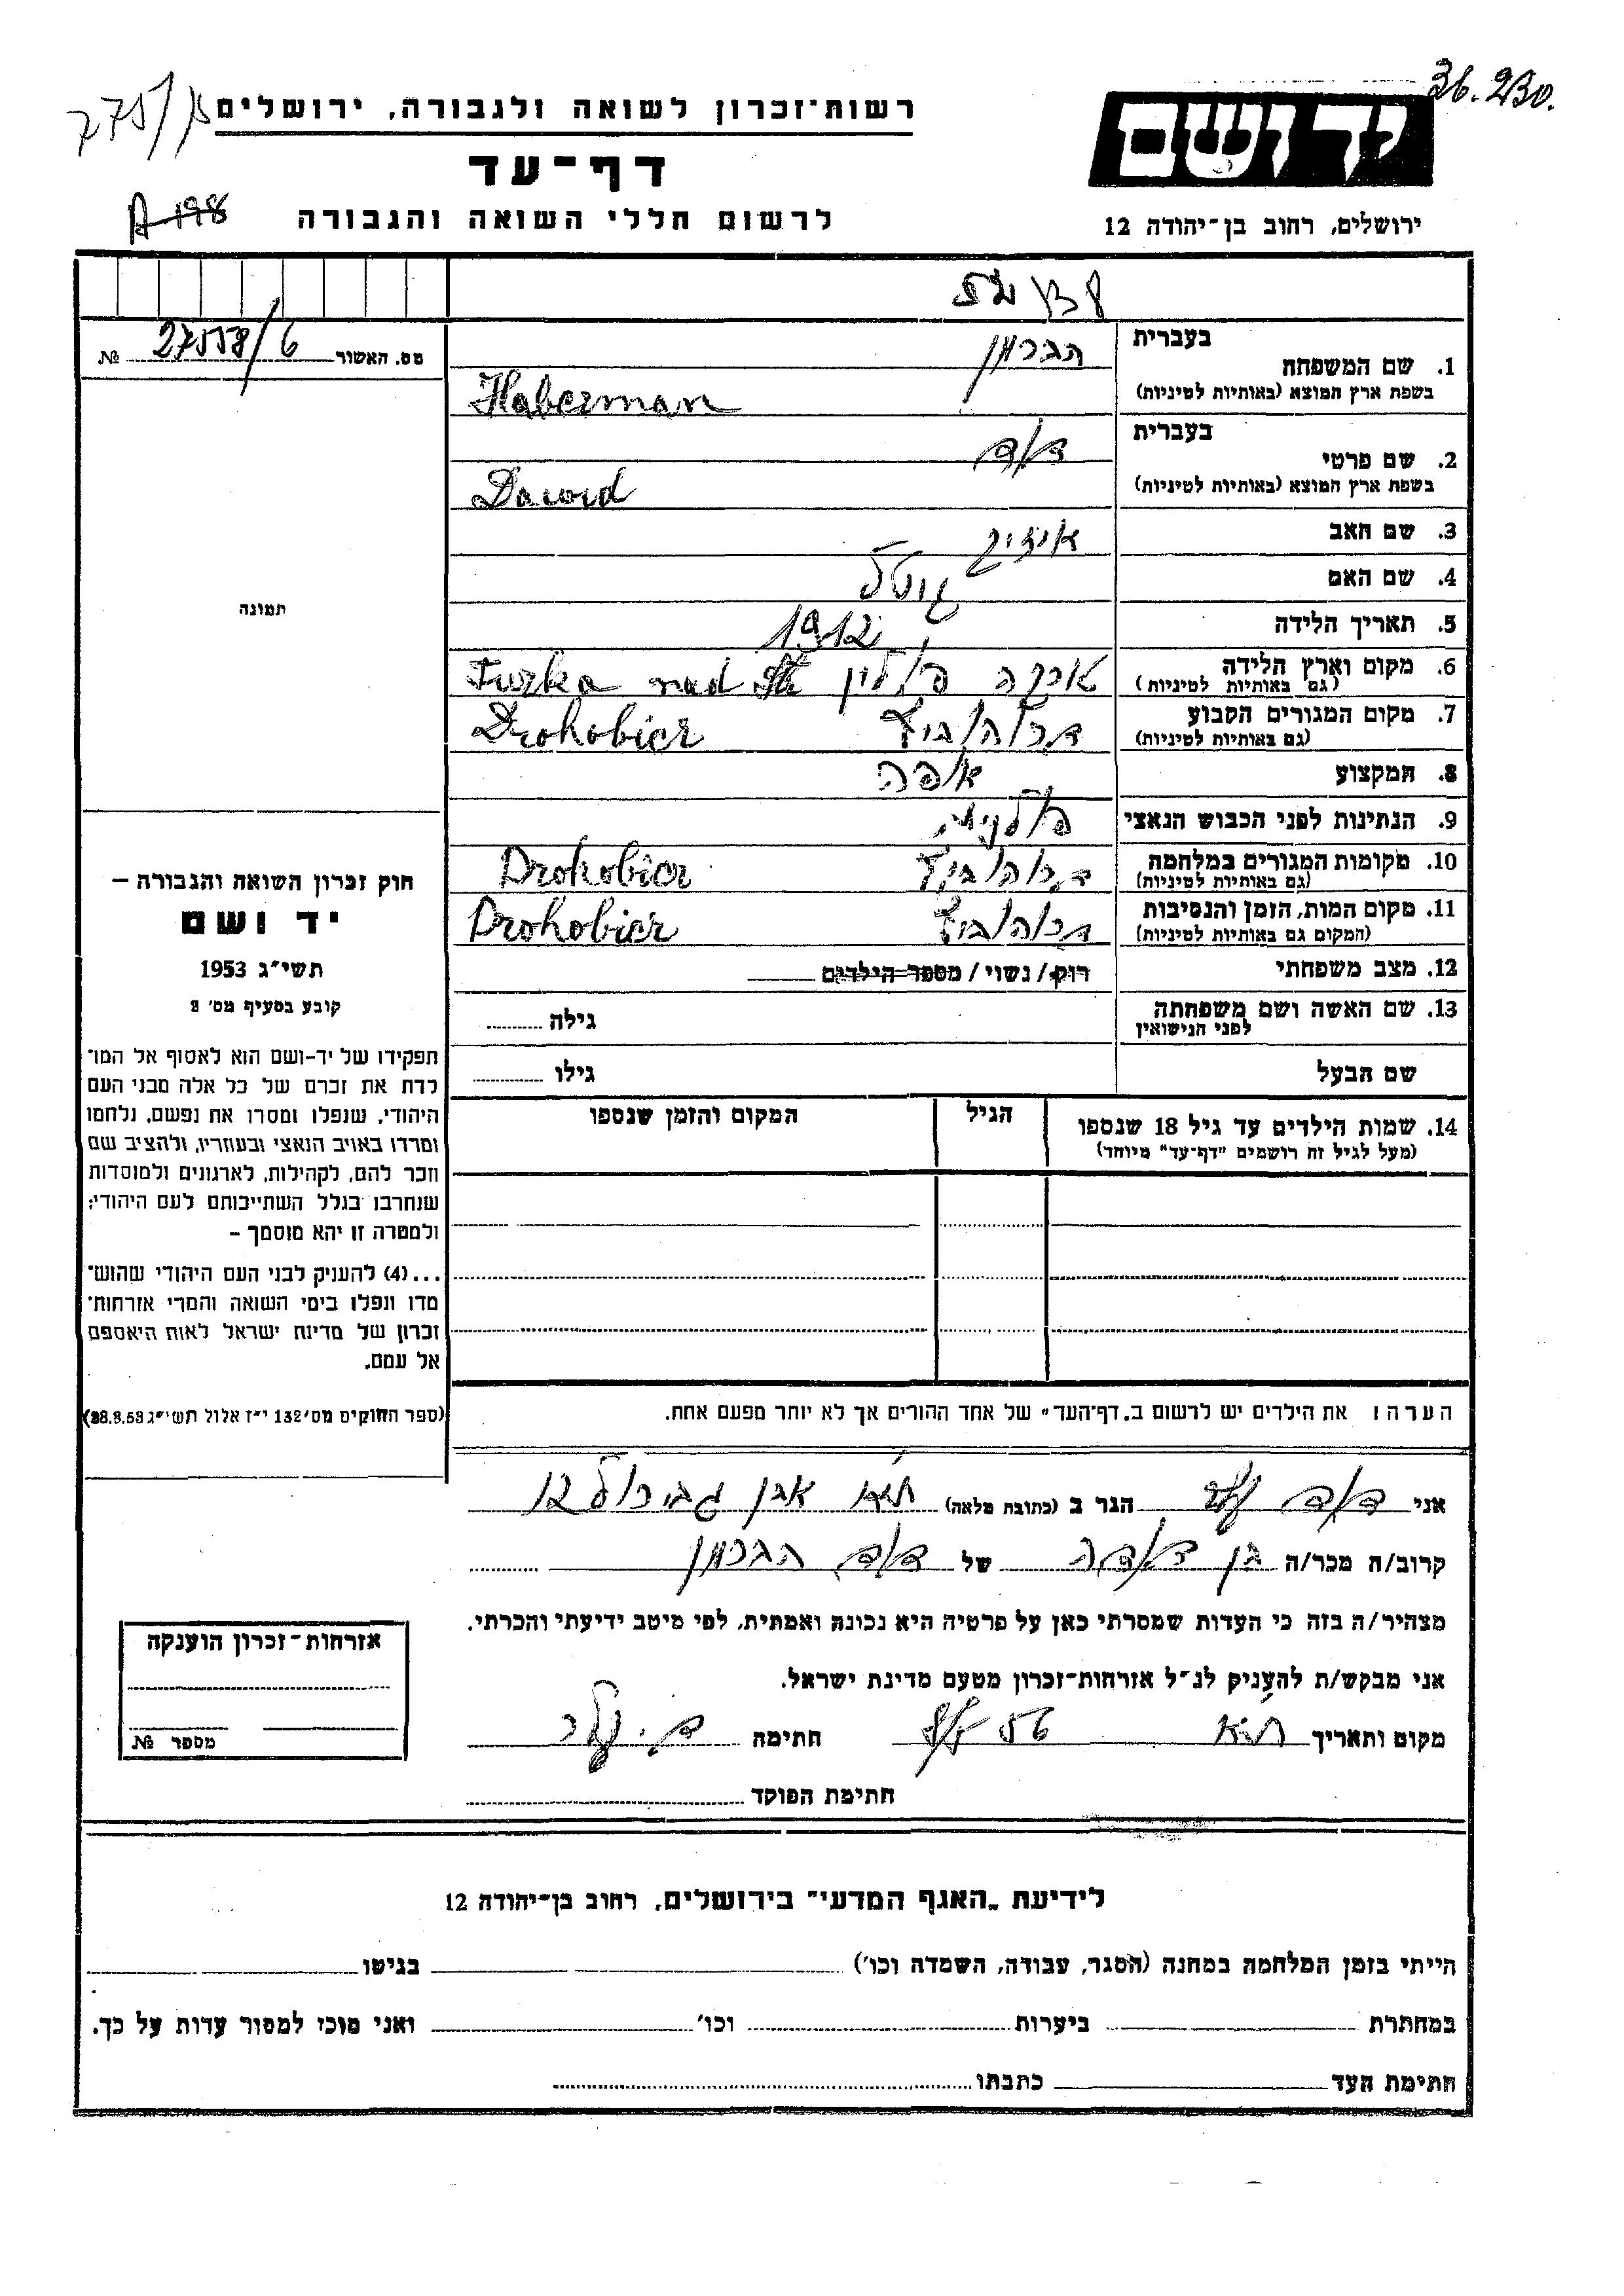 36.230.
רשות־זכרון לשואה ולגבורה, ירושלים
275/
יד ושם
דף־עד
A 198
לרשום חללי השואה והגבורה
ירושלים, רחוב בן־יהודה 12
מס. האשור 27558/6 №
בעברית הברמן
1. שם המשפחה
בשפת ארץ המוצא (באותיות לטיניות) Haberman
בעברית דוד
2. שם פרטי
בשפת ארץ המוצא (באותיות לטיניות) Dawid
3. שם האב איציק
4. שם האם גיטל
5. תאריך הלידה 1912
6. מקום וארץ הלידה פולין Turka nad St
(גם באותיות לטיניות)
7. מקום המגורים הקבוע דרוהוביץ Drohobicz
(גם באותיות לטיניות)
8. המקצוע אופה
9. הנתינות לפני הכבוש הנאצי פולנית
10. מקומות המגורים במלחמה דרוהוביץ Drohobicz
(גם באותיות לטיניות)
11. מקום המות, הזמן והנסיבות דרוהוביץ Drohobicz
(המקום גם באותיות לטיניות)
12. מצב משפחתי רוק/נשוי/מספר הילדים
13. שם האשה ושם משפחתה גילה
לפני הנישואין
שם הבעל גילו
14. שמות הילדים עד גיל 18 שנספו הגיל המקום והזמן שנספו
(מעל לגיל זה רושמים "דף־עד" מיוחד)
תמונה
חוק זכרון השואה והגבורה –
יד ושם
תשי״ג 1953
קובע בסעיף מס׳ 2
תפקידו של יד־ושם הוא לאסוף אל המו־
לדת את זכרם של כל אלה מבני העם
היהודי, שנפלו ומסרו את נפשם, נלחמו
ומרדו באויב הנאצי ובעוזריו, ולהציב שם
וזכר להם, לקהילות, לארגונים ולמוסדות
שנחרבו בגלל השתייכותם לעם היהודי;
ולמטרה זו יהא מוסמך –
...(4) להעניק לבני העם היהודי שהוש־
מדו ונפלו בימי השואה והמרי אזרחות־
זכרון של מדינת ישראל לאות היאספם
אל עמם.
(ספר החוקים מס׳ 132 י״ז אלול תשי״ג 28.8.53)
הערה: את הילדים יש לרשום ב„דף־העד״ של אחד ההורים אך לא יותר מפעם אחת.
אני דוד הגר ב (כתובת מלאה) ת״א אבן גבירול 12
קרוב/ה מכר/ה בן דודה של דוד הברמן
מצהיר/ה בזה כי העדות שמסרתי כאן על פרטיה היא נכונה ואמתית, לפי מיטב ידיעתי והכרתי.
אני מבקש/ת להעניק לנ״ל אזרחות־זכרון מטעם מדינת ישראל.
מקום ותאריך ת״א חתימה
חתימת הפוקד
אזרחות־זכרון הוענקה
מספר №
לידיעת „האגף המדעי״ בירושלים, רחוב בן־יהודה 12
הייתי בזמן המלחמה במחנה (הסגר, עבודה, השמדה וכו׳) בגיטו
במחתרת ביערות וכו׳ ואני מוכן למסור עדות על כך.
חתימת העד כתבתו